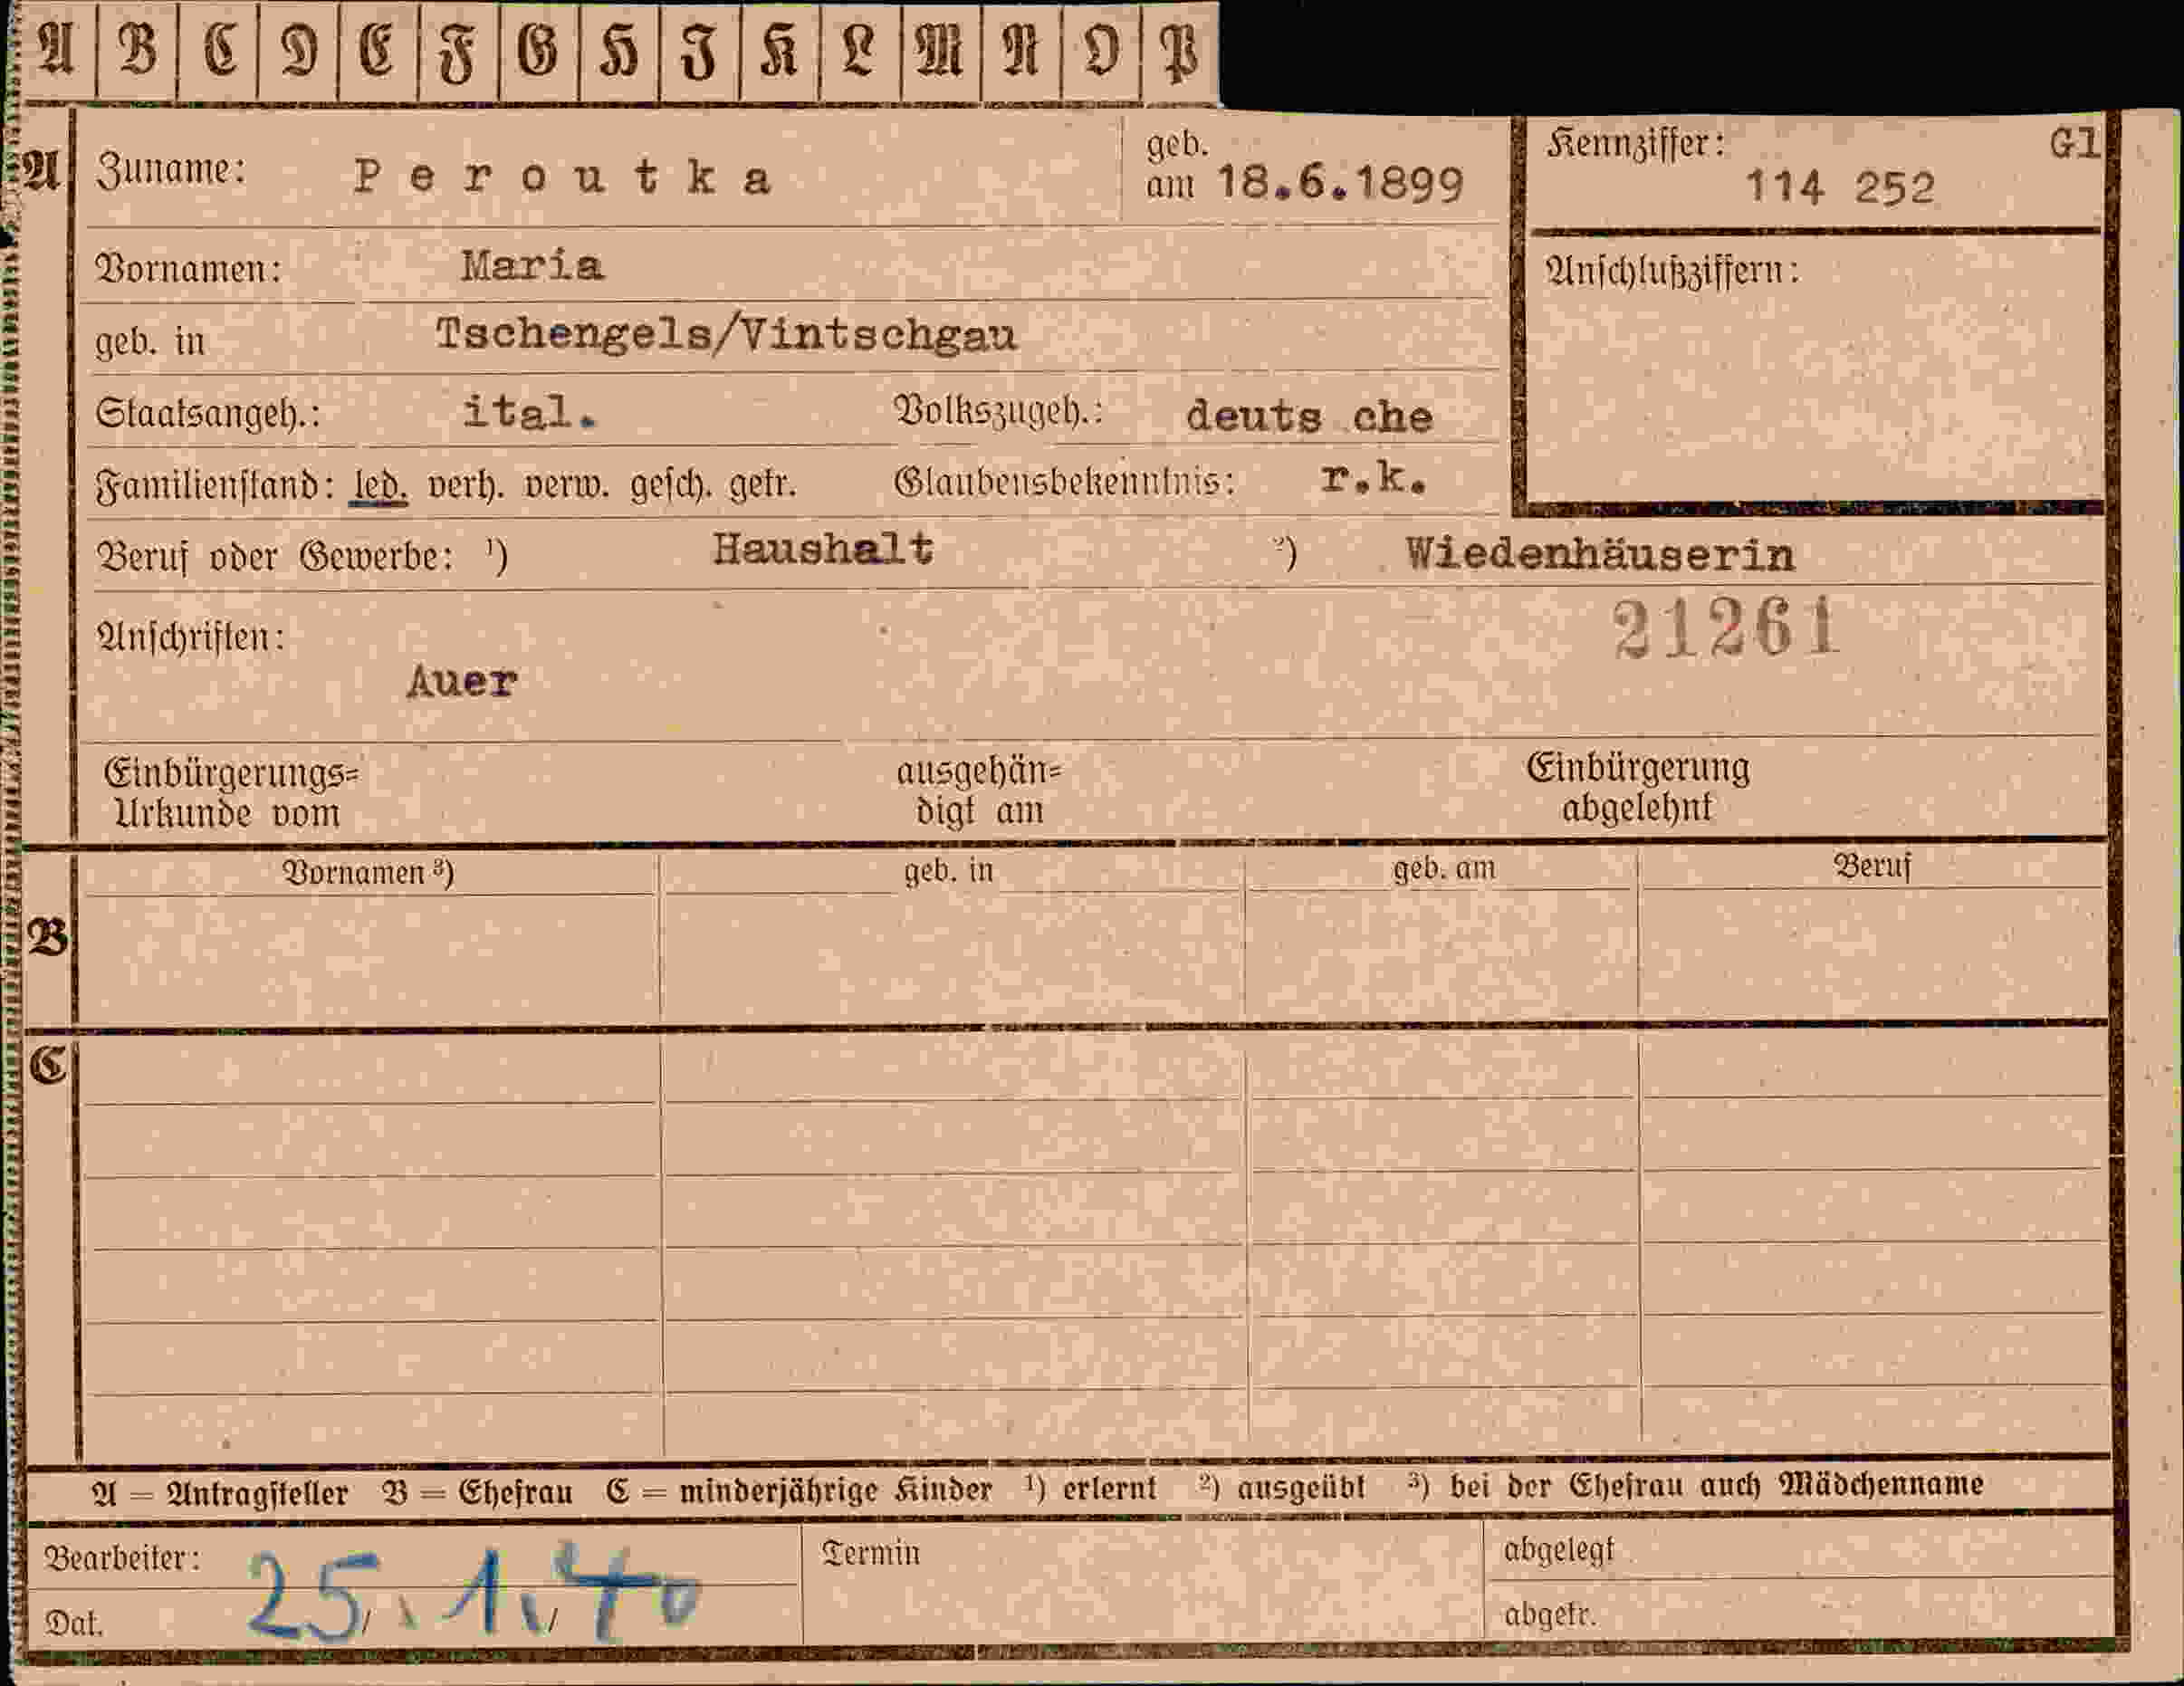 A B C D E F G H J K L M N O P
A Zuname: Peroutka geb. am 18.6.1899 Kennziffer: 114 252 G1
Vornamen: Maria Anschlußziffern:
geb. in Tschengels/Vintschgau
Staatsangeh.: ital. Volkszugeh.: deuts che
Familienstand: led. verh. verw. gesch. getr. Glaubensbekenntnis: r.k.
Beruf oder Gewerbe: ¹) Haushalt ²) Wiedenhäuserin
21261
Anschriften:
Auer
Einbürgerungs= ausgehän= Einbürgerung
Urkunde vom digt am abgelehnt
Vornamen ³) geb. in geb. am Beruf
B
C
A = Antragsteller B = Ehefrau C = minderjährige Kinder ¹) erlernt ²) ausgeübt ³) bei der Ehefrau auch Mädchenname
Bearbeiter: Termin abgelegt
Dat. 25.1.40 abgetr.